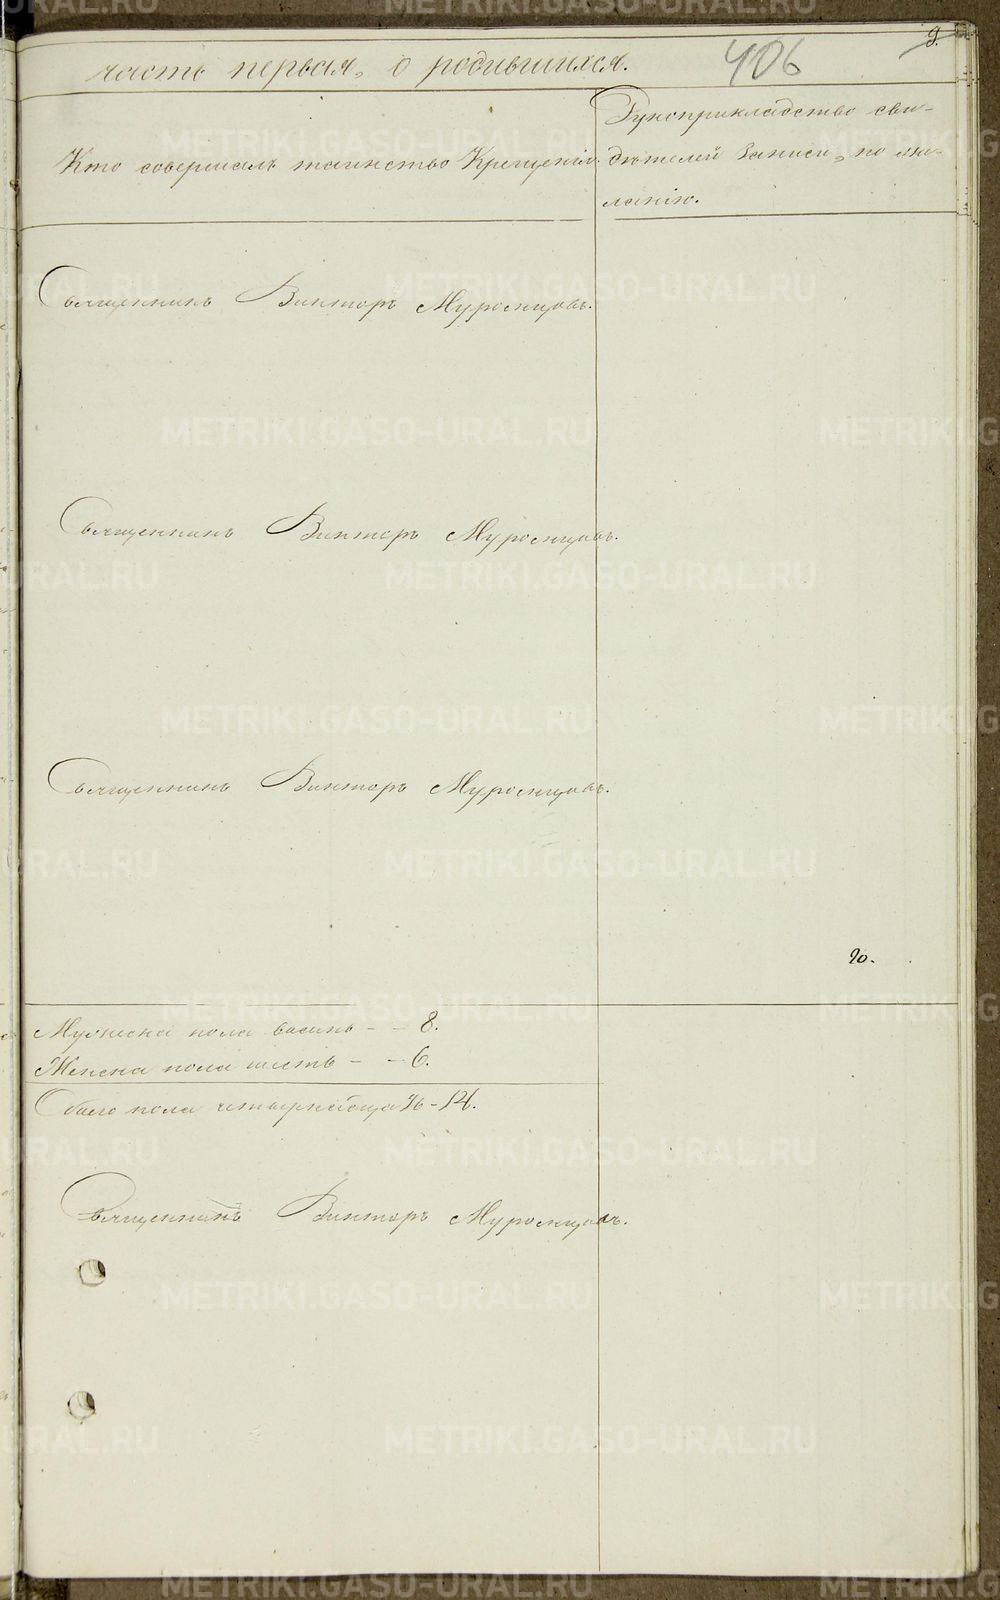 9.
часть первая, о родившихся.
406
Кто совершалъ таинство Крещенія.
Рукоприкладство сви-
дѣтелей записи, по же-
ланію.
Священникъ Викторъ Муромцовъ.
Священникъ Викторъ Муромцовъ.
Священникъ Викторъ Муромцовъ.
20.
Мужеска пола восемь - - 8.
Женска пола шесть - - 6.
Обоего пола четырнадцать - 14.
Священникъ Викторъ Муромцовъ.
METRIKI.GASO-URAL.RU